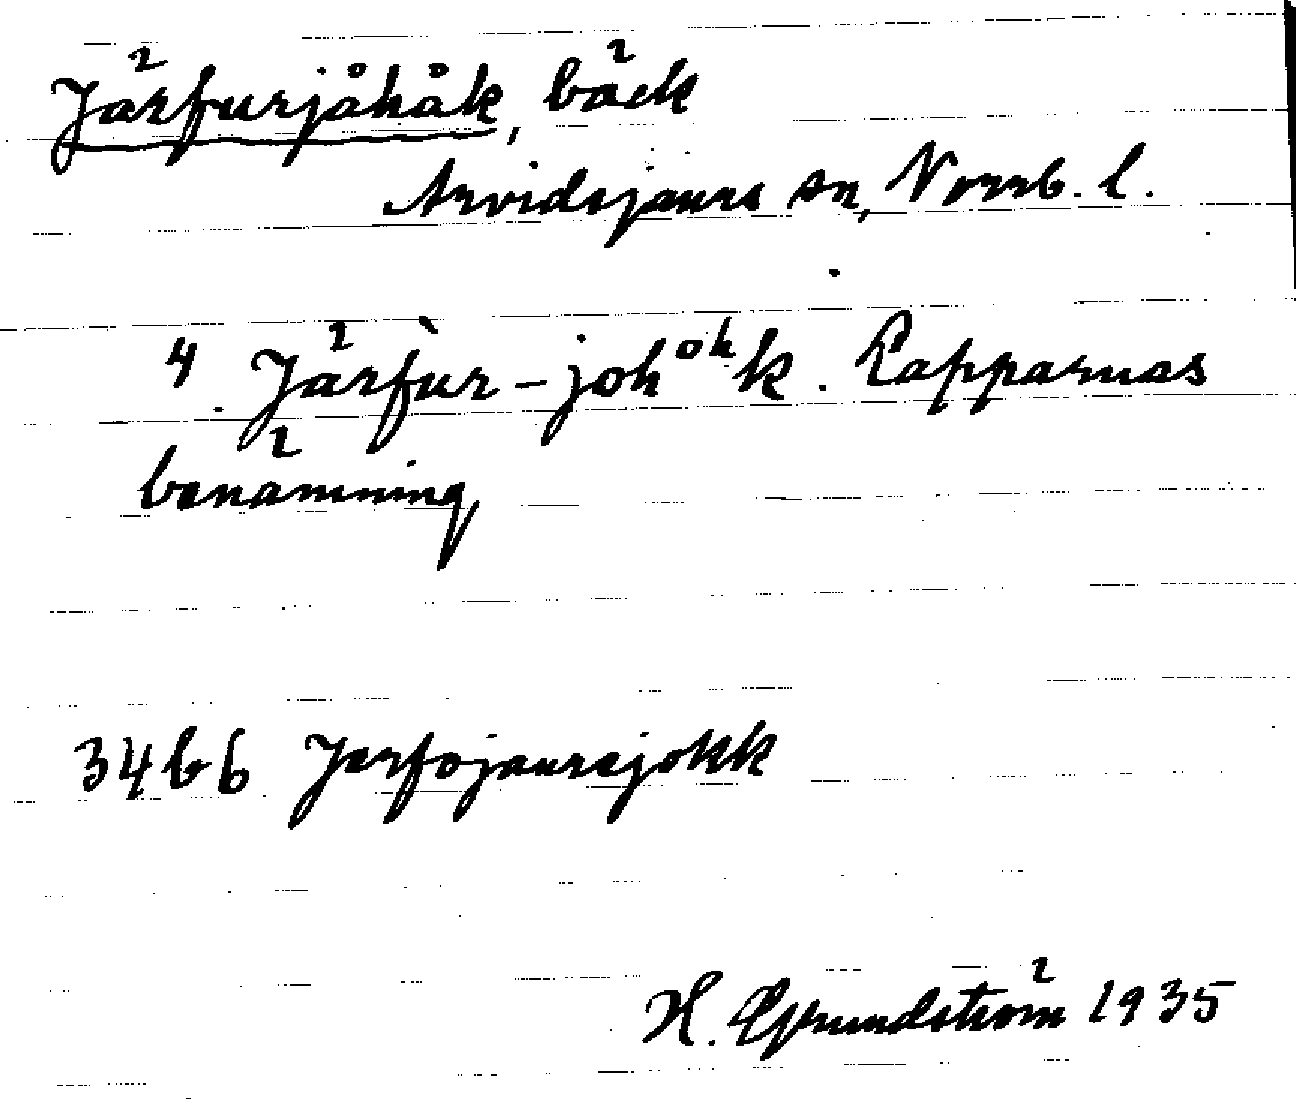 Järfurjåhåk, bäck
Arvidsjaurs sn, Norrb. l.
4. Järfùr-johᵒʰk. Lapparnas
benämning
34 b 6 Jerfojaursjokk
H. Grundström 1935